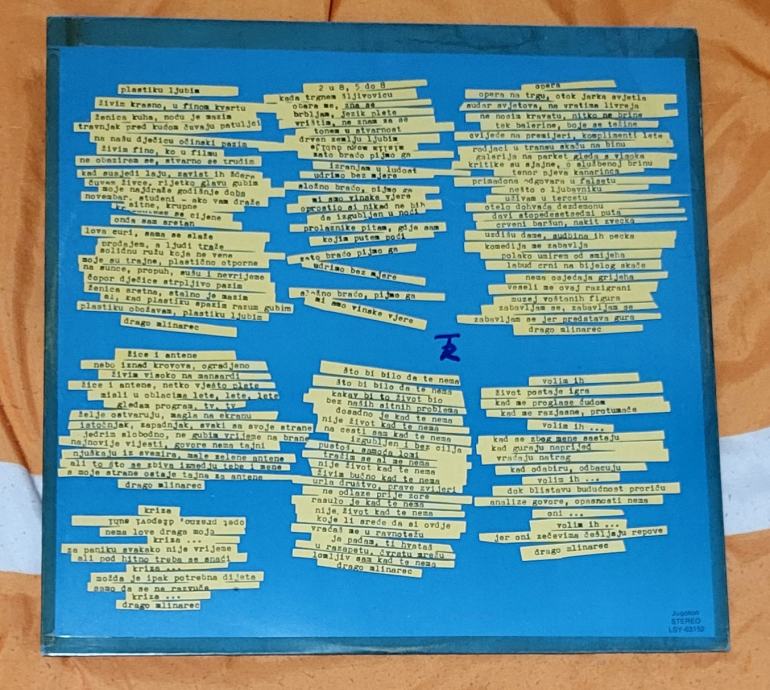 plastiku ljubim
živim krasno, u finom kvartu
ženica kuha, noću je mazim
travnjak pred kućom čuvaju patuljci
na našu dječicu očinski pazim
živim fino, ko u filmu
ne obazirem se, stvarno se trudim
kad susjedi laju, zavist ih ždere
čuvam živce, rijetko glavu gubim
moje najdraže godišnje doba
novembar, studeni - ako vam draže
sitne, krupne
se cijene
onda sam sretan
lova curi, sama se slaže
prodajem, a ljudi traže
solidnu ružu koja ne vene
moje su trajne, plastično otporne
na sunce, propuh, sušu i nevrijeme
čopor dječice strpljivo pazim
ženica sretna, stalno je mazim
al, kad plastiku spazim razum gubim
plastiku obožavam, plastiku ljubim
drago mlinarec
2 u 8, 5 do 8
kada trgnem šljivovicu
obara me, zna se
brbljam, jezik plete
vrištim, ne znam za se
tonem u stvarnost
drven zemlju ljubim
zato braćo pijmo ga
izranjam u ludost
udrimo bez mjere
složno braćo, pijmo ga
mi smo vinske vjere
oprostio si nikad ne bih
da izgubljen u noći
prolaznike pitam, gdje sam
kojim putem poći
zato braćo pijmo ga
udrimo bez mjere
složno braćo, pijmo ga
mi smo vinske vjere
opera
opera na trgu, otok jarka svjetla
sudar svjetova, na vratima livreja
ne nosim kravatu, nitko ne brine
tek balerine, boje se težine
ovdje na premijeri, komplimenti lete
rođaci u transu skaču na binu
galerija na parket gleda s visoka
kritike su sjajne, o službenoj brinu
tenor pjeva kanarinca
primadona odgovara u falsetu
nešto o ljubavniku
uživam u tercetu
otelo dohvaća dezdemonu
davi stopedesetsedmi puta
crveni baršun, nakit zvecka
uzdišu dame, sudbina ih pecka
komedija me zabavlja
polako umirem od smijeha
labud crni na bijelog skače
nema osjećaja grijeha
veseli me ovaj razigrani
muzej voštanih figura
zabavljam se, zabavljam se
zabavljam se jer predstava gura
drago mlinarec
žice i antene
nebo iznad krovova, ograđeno
živim visoko na mansardi
žice i antene, netko vješto plete
misli u oblacima lete, lete, lete
gledam program, tv, tv
želje ostvaruju, magla na ekranu
istočnjak, zapadnjak, svaki sa svoje strane
jedrim slobodno, ne gubim vrijeme na brane
najnovije vijesti, govore nema tajni
njuškaju iz svemira, male zelene antene
ali to što se zbiva između tebe i mene
s moje strane ostaje tajna za antene
drago mlinarec
što bi bilo da te nema
što bi bilo da te nema
kakav bi to život bio
bez naših sitnih problema
dosadno je kad te nema
nije život kad te nema
na cesti sam kad te nema
izgubljen i bez cilja
pustoš, samoća lomi
tražim se al me nema
nije život kad te nema
živim bučno kad te nema
urla društvo, prave zvijeri
ne odlaze prije zore
rasulo je kad te nema
nije život kad te nema
koje li sreće da si ovdje
vraćaš me u ravnotežu
ja padam, ti hvataš
u raspetu, čvrstu mrežu
lomljiv sam kad te nema
drago mlinarec
volim ih
život postaje igra
kad me proglase čudom
kad me razjasne, protumače
volim ih ...
kad se zbog mene sastaju
kad guraju naprijed
vraćaju natrag
kad odabiru, odbacuju
volim ih ...
dok blistavu budućnost proriču
analize govore, opasnosti nema
oni ...
volim ih ...
jer oni zečevima češljaju repove
drago mlinarec
kriza
nema love draga moja
kriza ...
za paniku svakako nije vrijeme
ali pod hitno treba se snaći
kriza ...
možda je ipak potrebna dijeta
samo da se ne razvuče
kriza ...
drago mlinarec
Jugoton
STEREO
LSY-63152